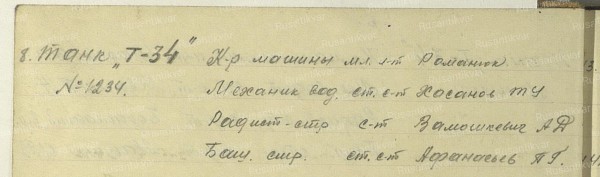 8. Танк "Т-34" К-р машины мл. л-т Романюк
№ 1234. Механик вод. ст. с-т Хасанов
Радист-стр с-т Вамошкевич А
Баш. стр. ст. с-т Афанасьев П.Г.